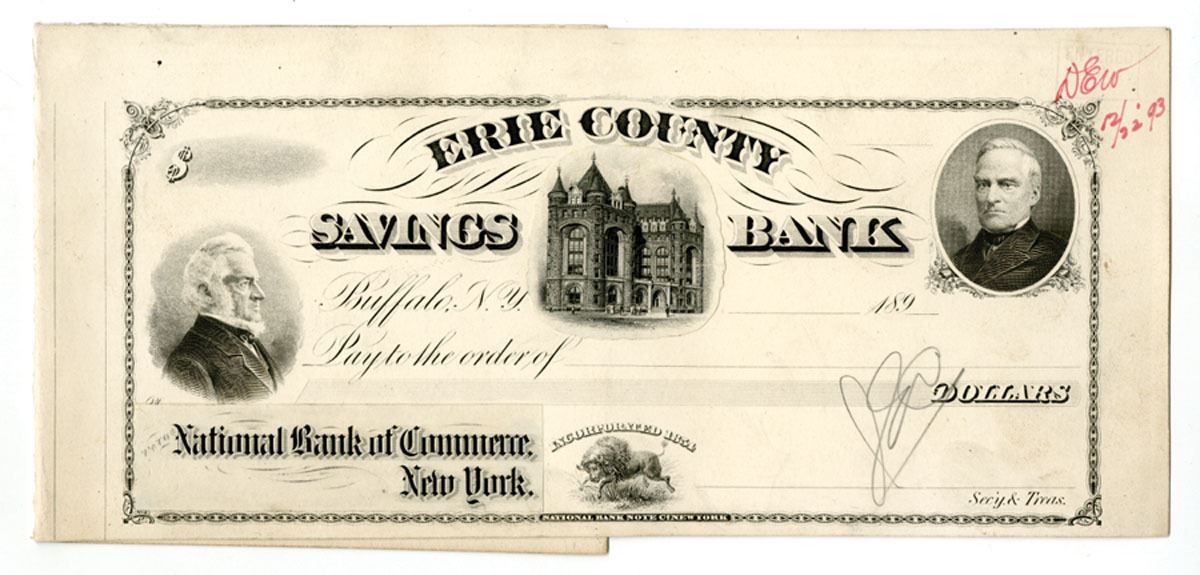 DEW
12/22 '93
ERIE COUNTY
$
SAVINGS BANK
Buffalo, N.Y. 189
Pay to the order of
DOLLARS
National Bank of Commerce,
New York.
INCORPORATED 1854
Sec'y. & Treas.
NATIONAL BANK NOTE CO. NEW YORK